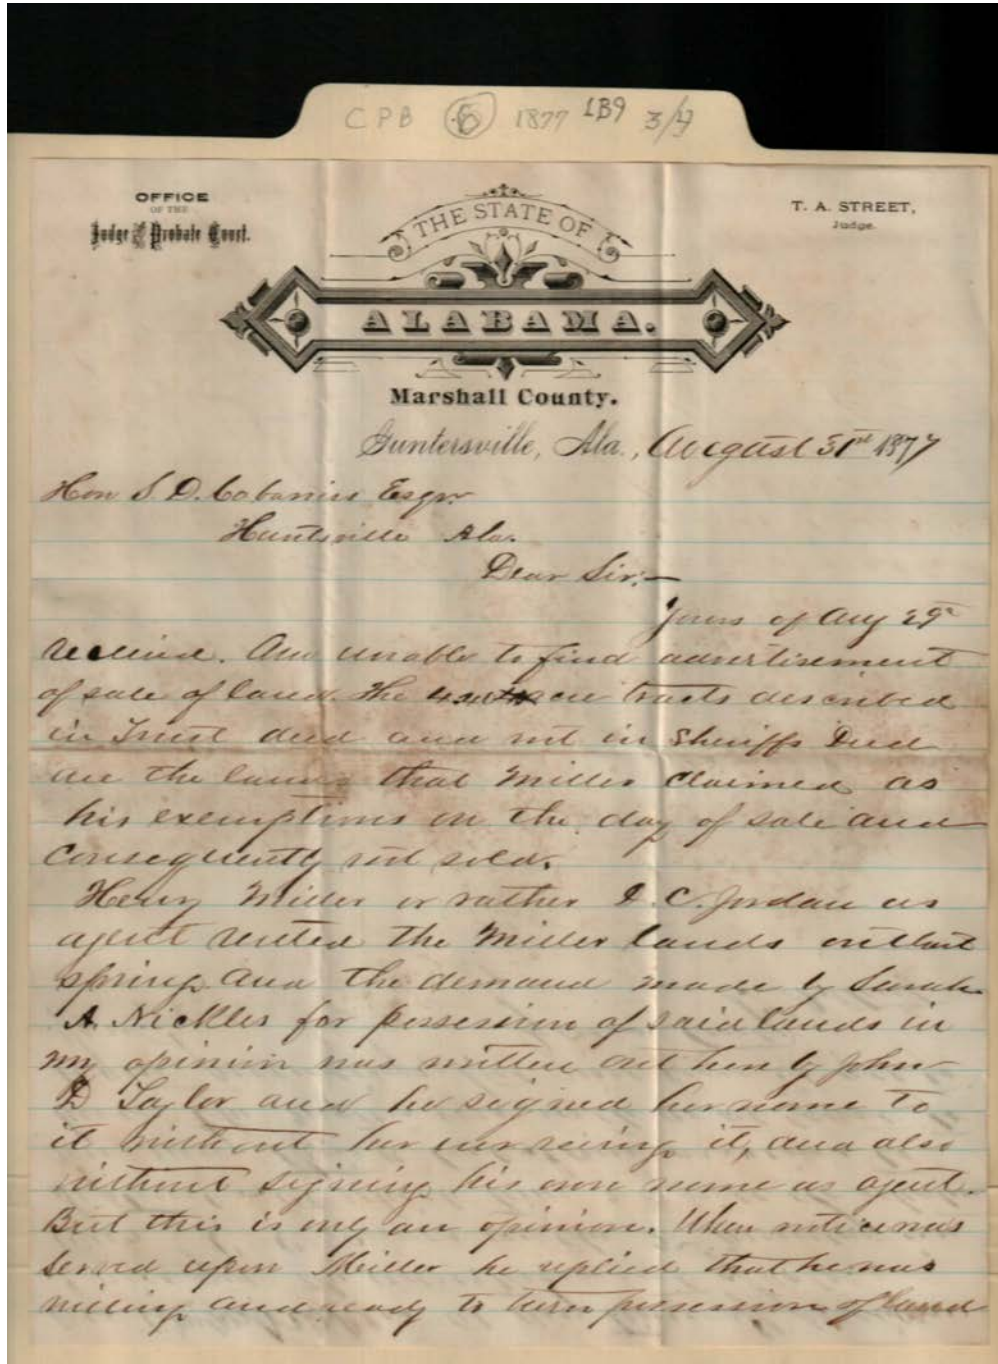 CPB 6 1877 1B9 3/4
OFFICE
OF THE
Judge of the Probate Court.
T. A. STREET,
Judge.
THE STATE OF
ALABAMA.
Marshall County.
Guntersville, Ala., August 31st 1877
Hon S. D. Cabaniss Esqr
Huntsville Ala.
Dear Sir:—
Yours of Aug 29th
received. Am unable to find advertisement
of sale of land. The tracts described
in Trust deed and not in Sheriffs Deed
are the lands that Miller claimed as
his exemptions on the day of sale and
consequently not sold.
Henry Miller or rather J. C. Jordan as
agent rented the Miller lands out last
spring and the demand made by Sarah
A. Nickles for possession of said lands in
my opinion was written out here by John
D Taylor and he signed her name to
it without her ever seeing it, and also
without signing his own name as agent.
But this is only an opinion. When notice was
served upon Miller he replied that he was
willing and ready to turn possession of land